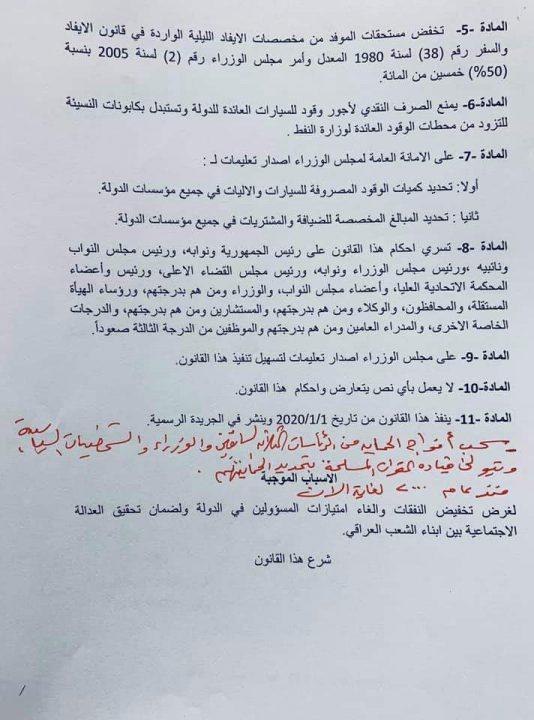 المادة -5- تخفض مستحقات الموفد من مخصصات الايفاد الليلية الواردة في قانون الايفاد
والسفر رقم (38) لسنة 1980 المعدل وأمر مجلس الوزراء رقم (2) لسنة 2005 بنسبة
(50%) خمسين من المائة.
المادة-6- يمنع الصرف النقدي لأجور وقود للسيارات العائدة للدولة وتستبدل بكابونات النسيئة
للتزود من محطات الوقود العائدة لوزارة النفط .
المادة -7- على الامانة العامة لمجلس الوزراء اصدار تعليمات لـ :
أولا: تحديد كميات الوقود المصروفة للسيارات والاليات في جميع مؤسسات الدولة.
ثانيا : تحديد المبالغ المخصصة للضيافة والمشتريات في جميع مؤسسات الدولة.
المادة -8- تسري احكام هذا القانون على رئيس الجمهورية ونوابه، ورئيس مجلس النواب
ونائبيه ،ورئيس مجلس الوزراء ونوابه، ورئيس مجلس القضاء الاعلى، ورئيس وأعضاء
المحكمة الاتحادية العليا، وأعضاء مجلس النواب، والوزراء ومن هم بدرجتهم، ورؤساء الهيأة
المستقلة، والمحافظون، والوكلاء ومن هم بدرجتهم، والمستشارين ومن هم بدرجتهم، والدرجات
الخاصة الاخرى، والمدراء العامين ومن هم بدرجتهم والموظفين من الدرجة الثالثة صعوداً.
المادة -9- على مجلس الوزراء اصدار تعليمات لتسهيل تنفيذ هذا القانون.
المادة-10- لا يعمل بأي نص يتعارض واحكام هذا القانون.
المادة -11- ينفذ هذا القانون من تاريخ 2020/1/1 وينشر في الجريدة الرسمية.
سحب أفواج الحماية من الرئاسات الثلاثة السابقين والوزراء والشخصيات السياسية
قيادة القوات المسلحة بتحديد
الاسباب الموجبة
منذ عام ٢٠٠٠ لغاية الان
لغرض تخفيض النفقات والغاء امتيازات المسؤولين في الدولة ولضمان تحقيق العدالة
الاجتماعية بين ابناء الشعب العراقي.
شرع هذا القانون